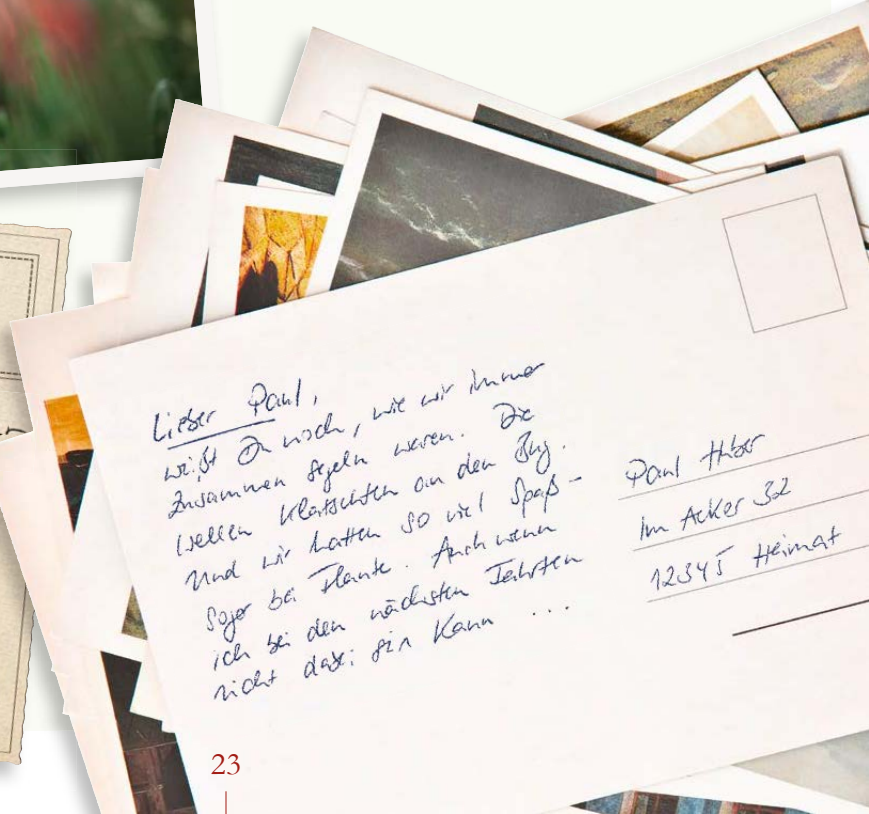 Lieber Paul,
weißt Du noch, wie wir immer
zusammen segeln waren. Die
Wellen klatschten an den Bug.
Und wir hatten so viel Spaß –
sogar bei Flaute. Auch wenn
ich bei den nächsten Fahrten
nicht dabei sein kann ...
Paul Huber
Im Acker 32
12345 Heimat
23